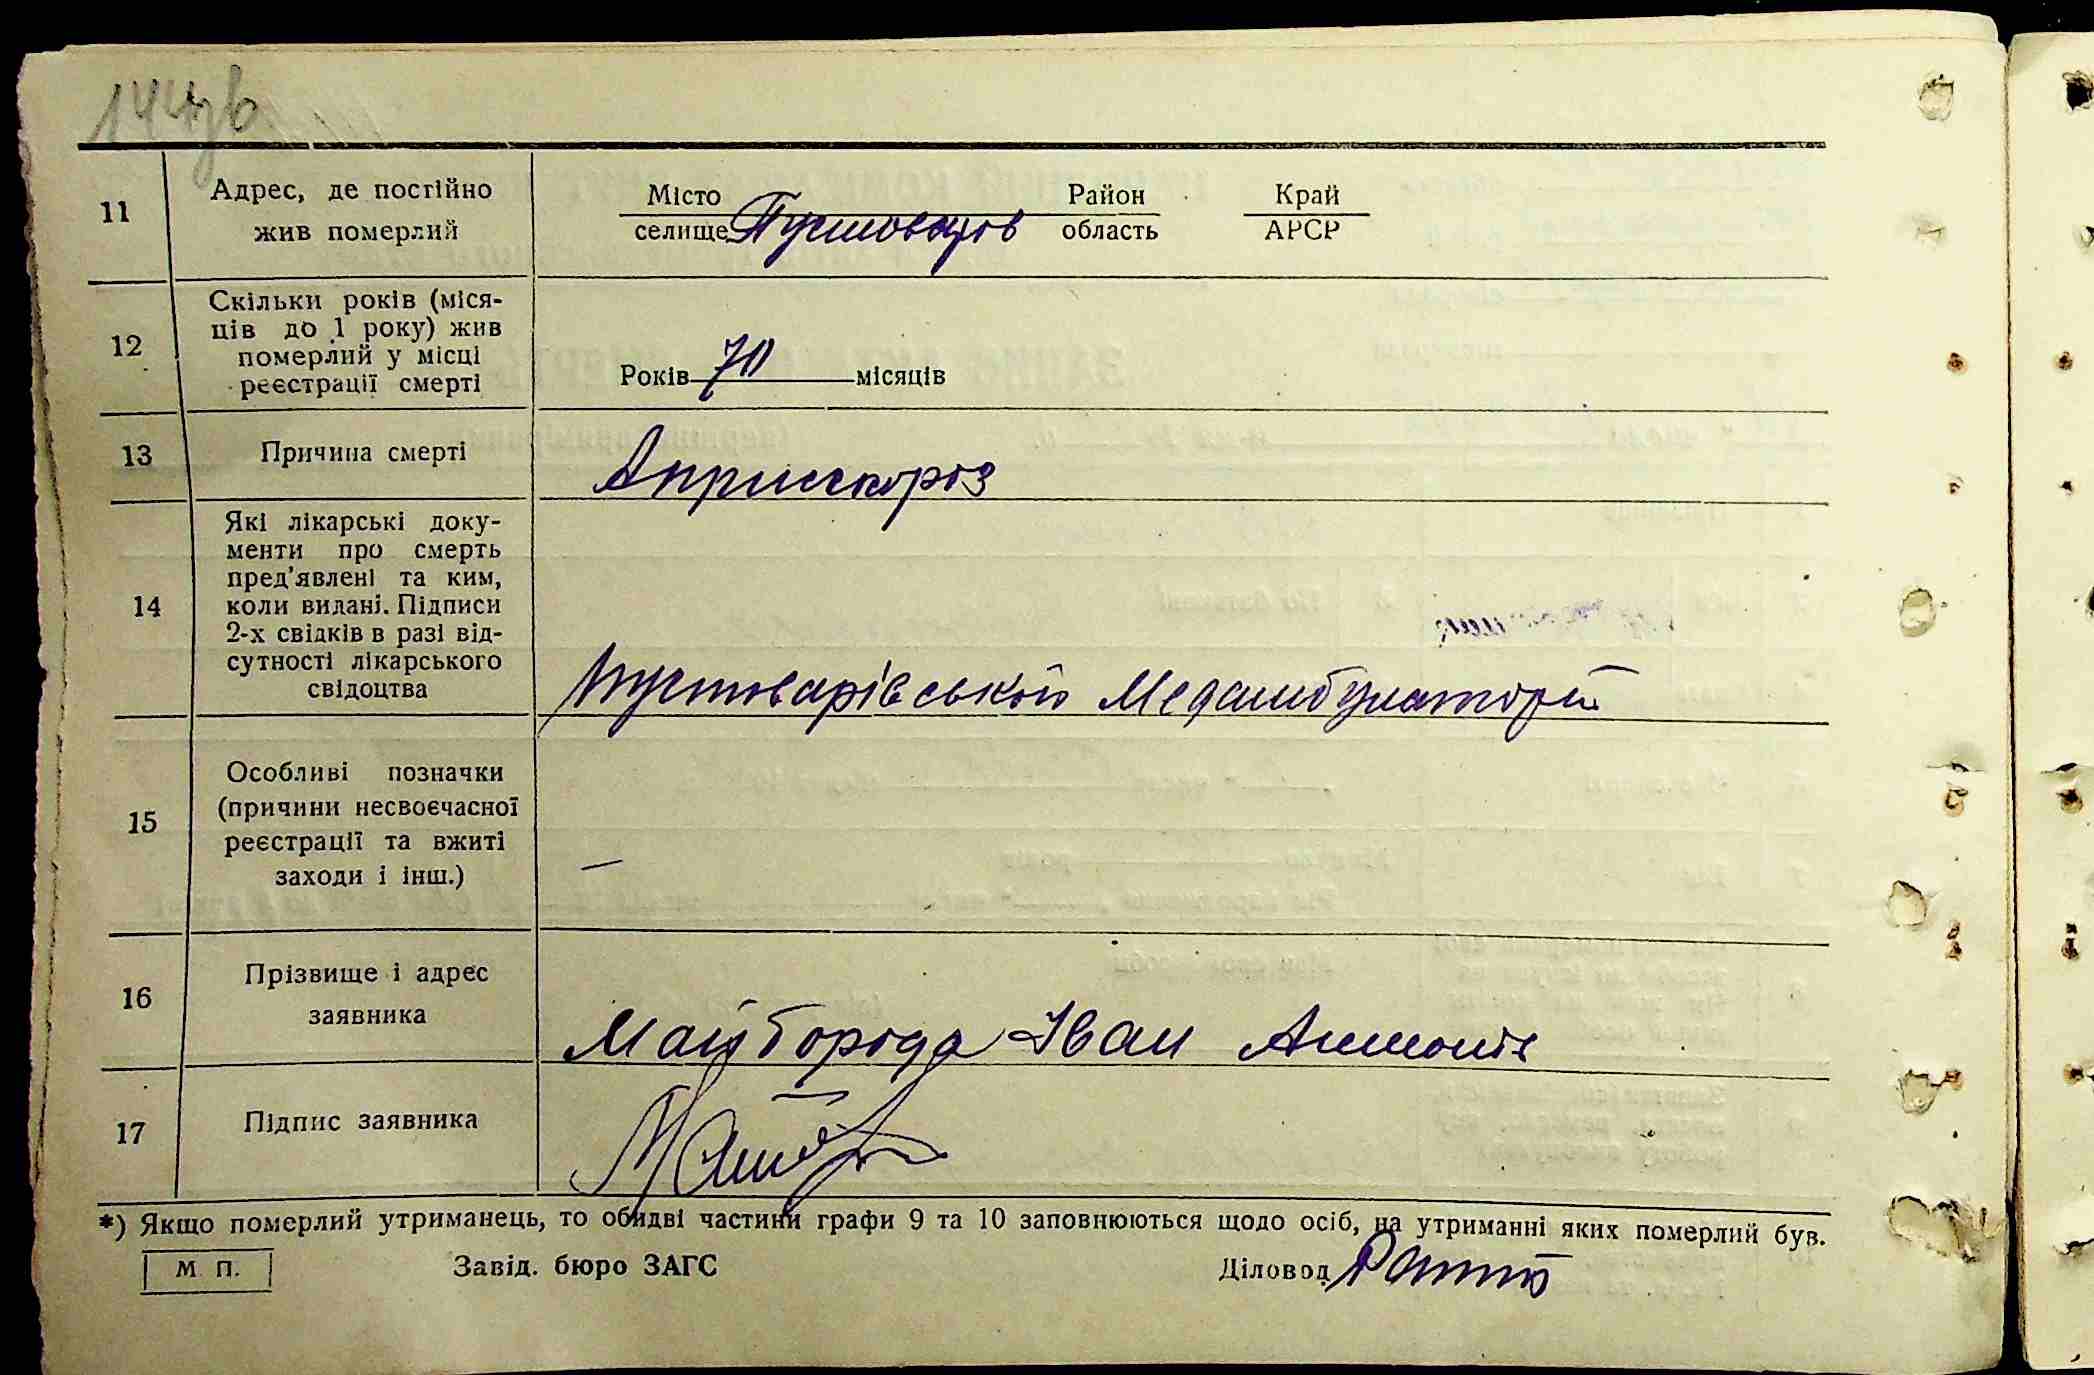 144
11 Адрес, де постійно жив померлий
Місто селище Пустовар Район область Край АРСР
12 Скільки років (міся-
ців до 1 року) жив
померлий у місці
реєстрації смерті
Років 70 місяців
13 Причина смерті
14 Які лікарські доку-
менти про смерть
пред'явлені та ким,
коли видані. Підписи
2-х свідків в разі від-
сутності лікарського
свідоцтва
Пустоварівською Медамбулаторій
15 Особливі позначки
(причини несвоєчасної
реєстрації та вжиті
заходи і інш.)
—
16 Прізвище і адрес
заявника
Майборода Іван Антонів
17 Підпис заявника
*) Якщо померлий утриманець, то обидві частини графи 9 та 10 заповнюються щодо осіб, на утриманні яких померлий був.
М. П. Завід. бюро ЗАГС Діловод